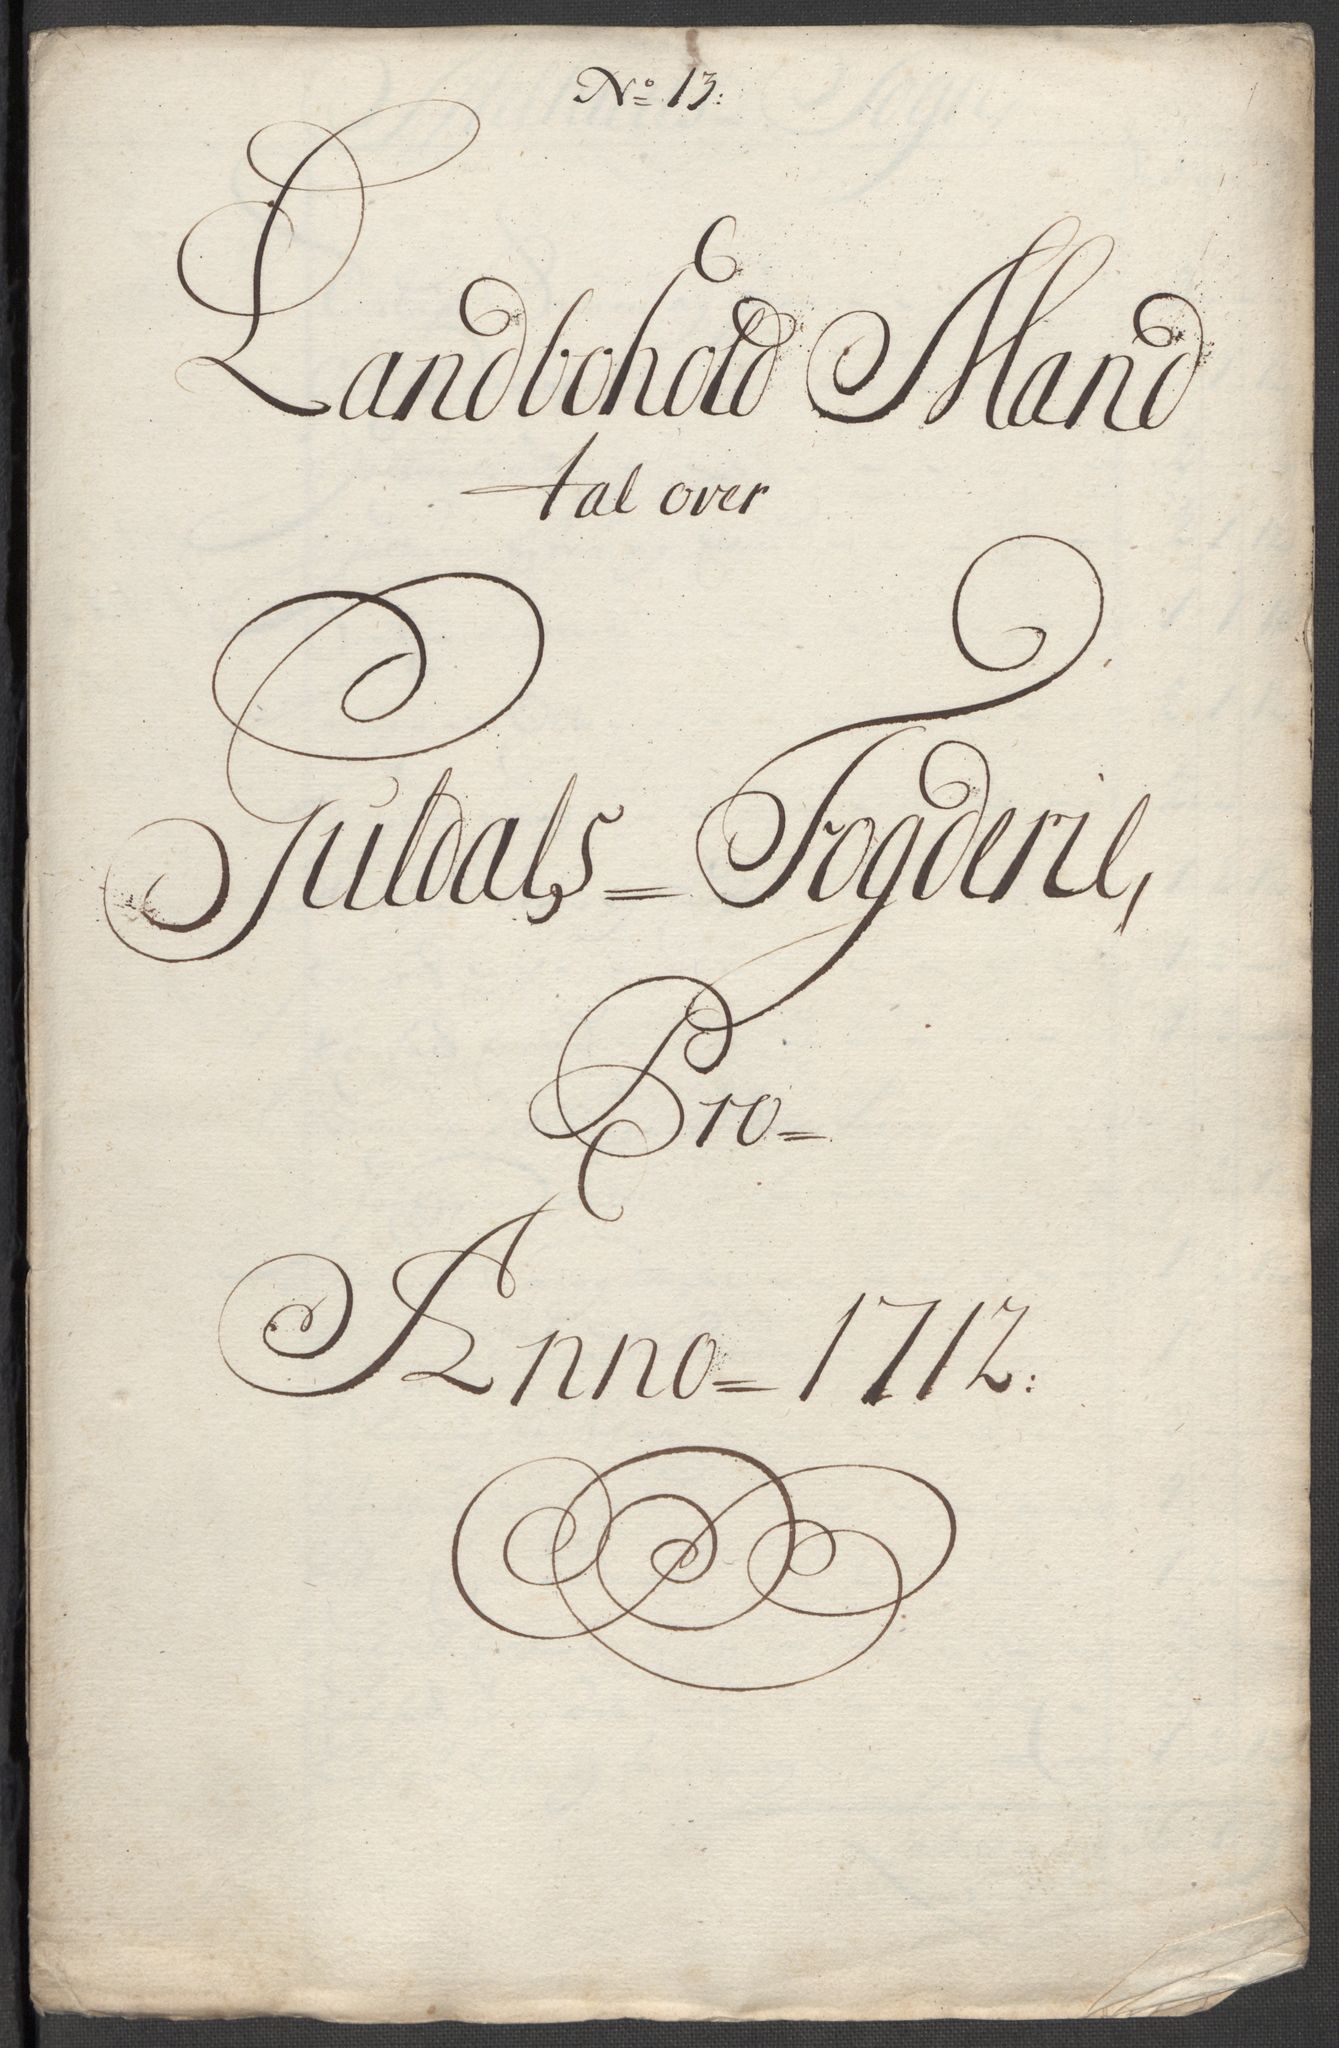 No 13:
Landbohold Mand
tal over
Guldals = Fogderie,
Pro =
Anno = 1712: